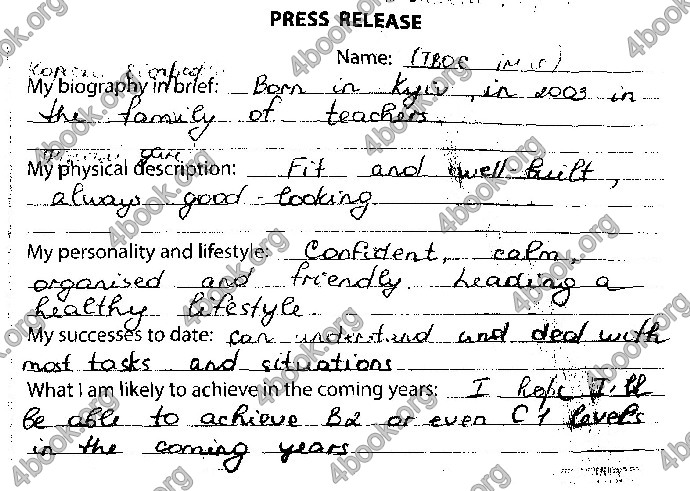 PRESS RELEASE
Name: (ТВОЄ ім'я)
My biography in brief: Born in Kyiv, in 2003 in
the family of teachers.
My physical description: Fit and well-built,
always good-looking
My personality and lifestyle: Confident, calm,
organised and friendly. Leading a
healthy lifestyle.
My successes to date: can understand and deal with
most tasks and situations
What I am likely to achieve in the coming years: I hope I'll
be able to achieve B2 or even C1 levels
in the coming years
4book.org